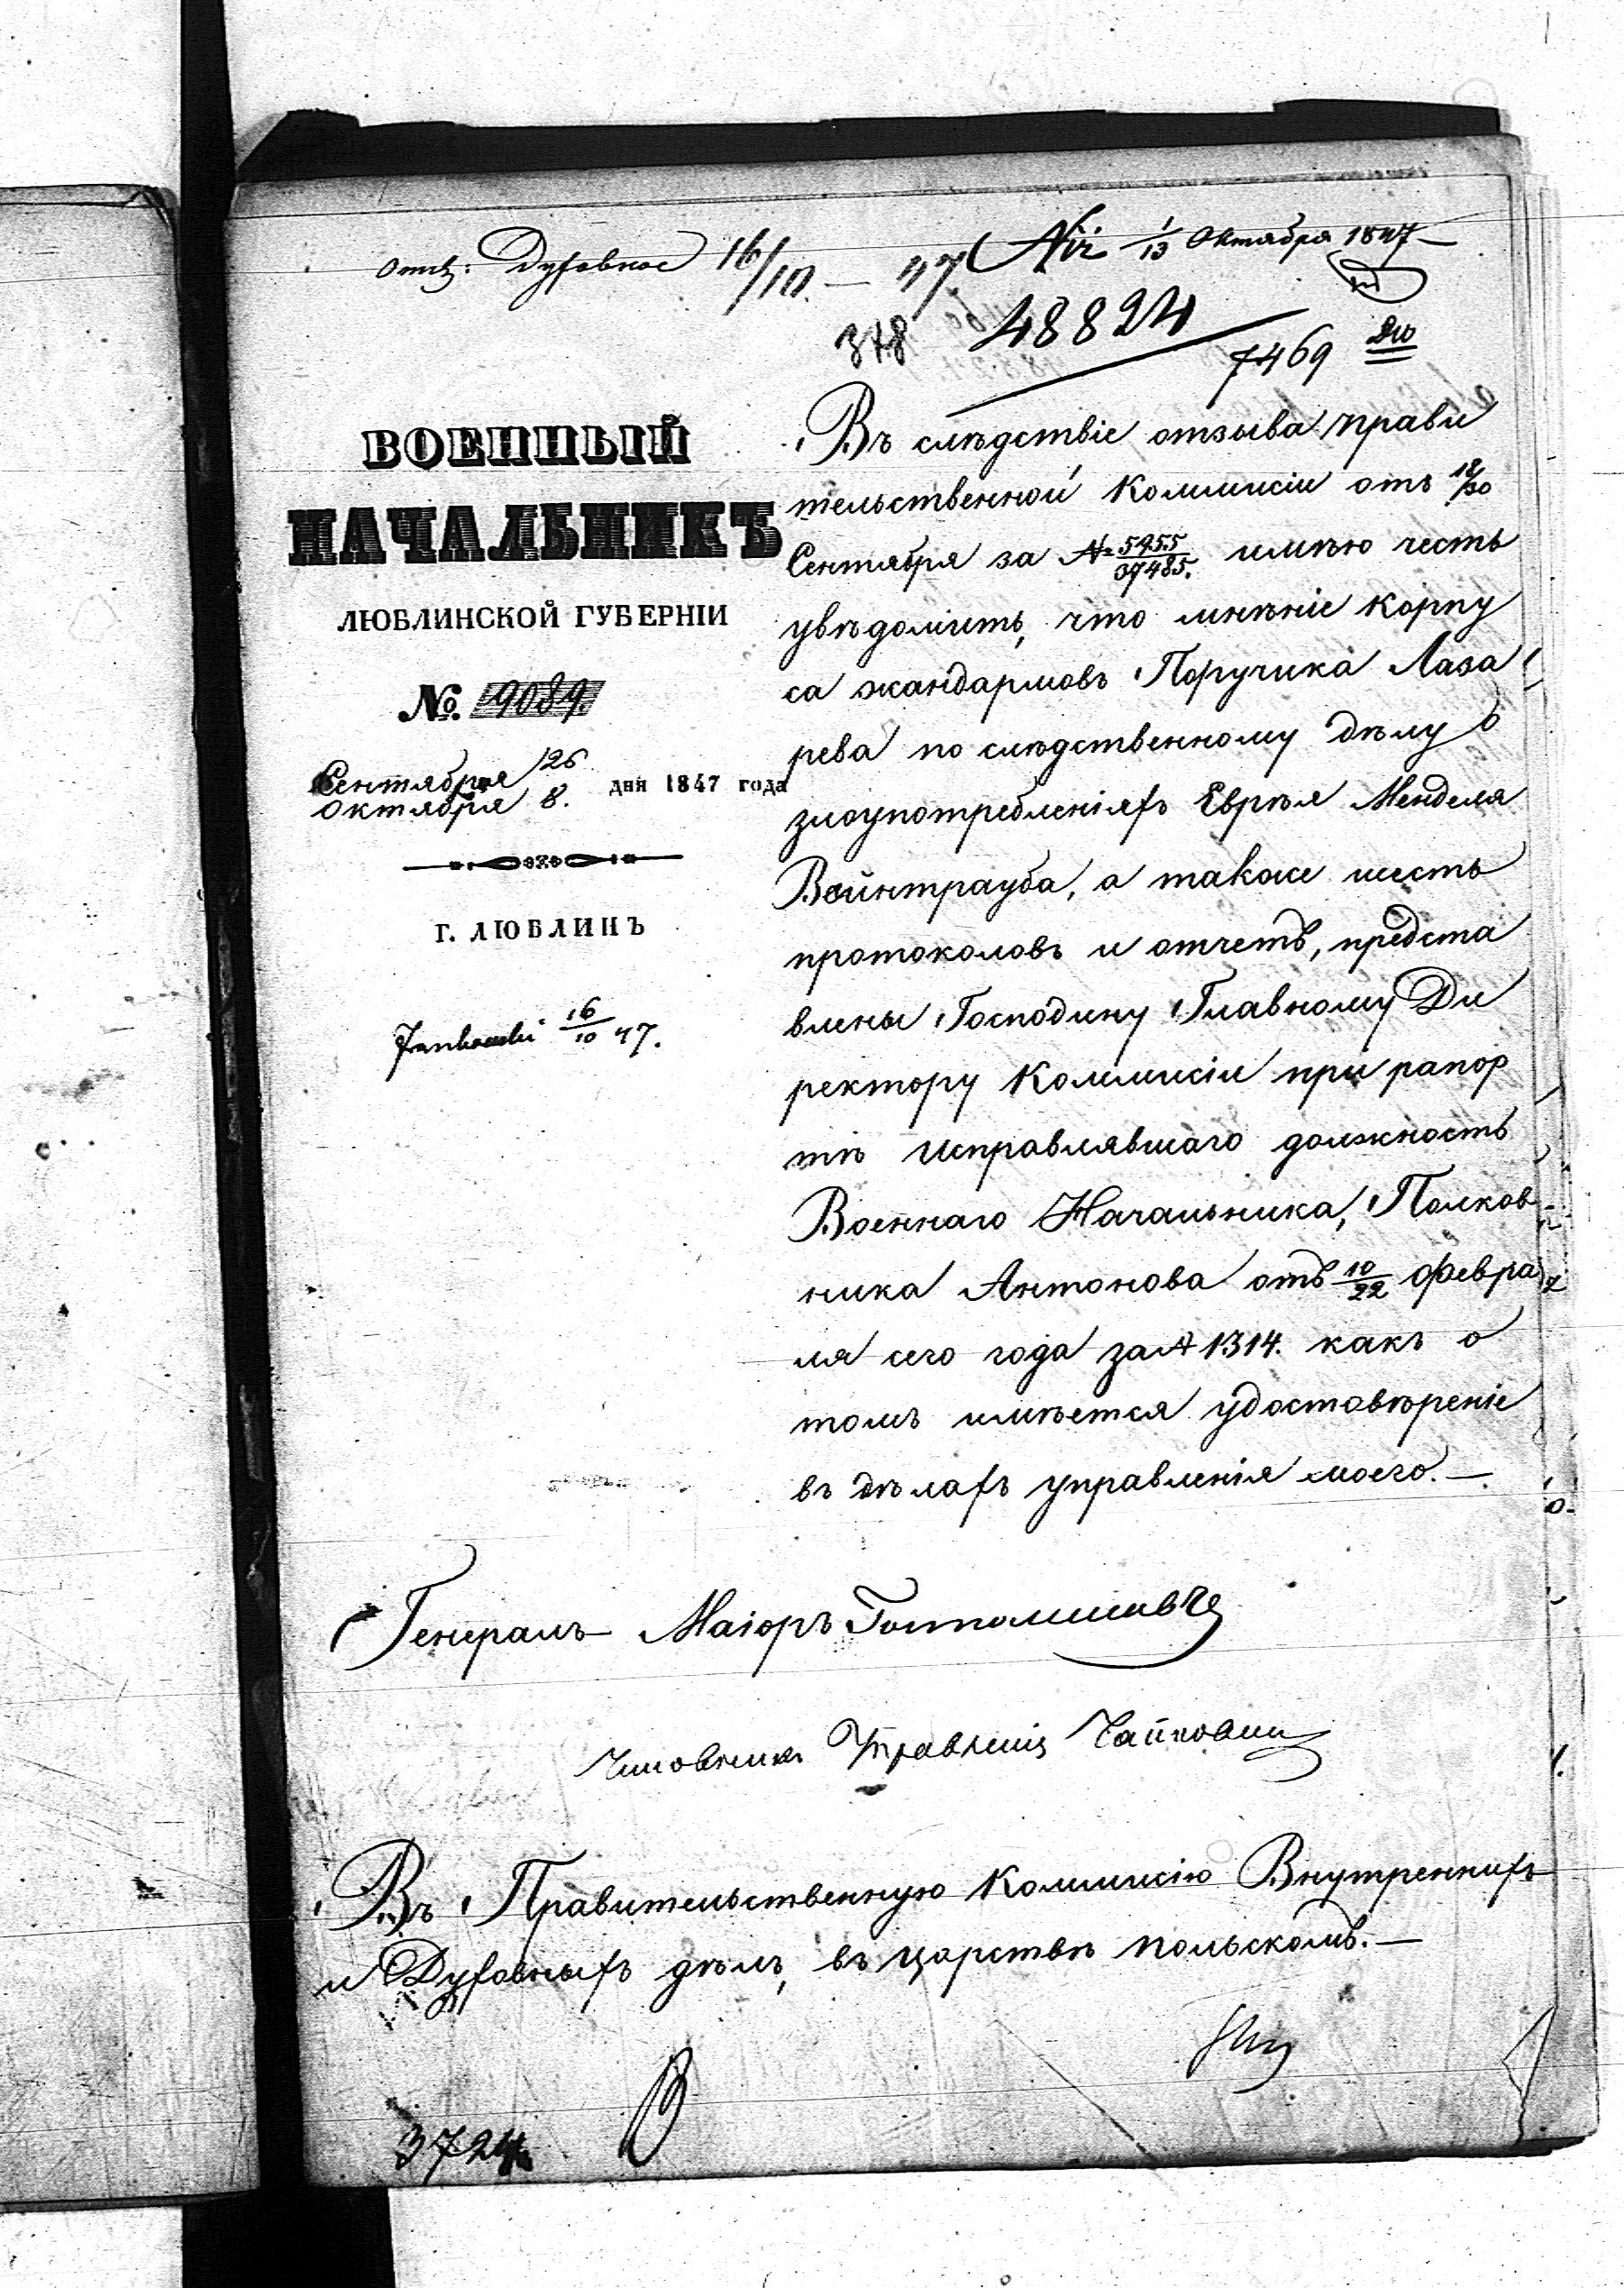 Духовное 16/10 — 47. 1/13 Октября 1847 —
378 48824
7469
ВОЕННЫЙ
НАЧАЛЬНИКЪ
ЛЮБЛИНСКОЙ ГУБЕРНІИ
№. 9089.
Сентября 26
Октября 8. дня 1847 года
Г. ЛЮБЛИНЪ
16/10 47.
Въ слѣдствіе отзыва прави
тельственной Коммисіи отъ 18/30
Сентября за № 5955/37485. имѣю честь
увѣдомить, что мнѣніе Корпу
са жандармовъ Поручика Лаза
рева по слѣдственному дѣлу о
злоупотребленіяхъ Еврея Менделя
Вайнтрауба, а также шесть
протоколовъ и отчетъ, предста
влены Господину Главному Ди
ректору Коммисіи при рапор
тѣ исправлявшаго должность
Военнаго Начальника, Полков
ника Антонова отъ 10/22 Февра
ля сего года за № 1314. какъ о
томъ имѣется удостовѣреніе
въ дѣлахъ управленія моего. —
Генералъ Маіоръ
Чиновникъ Управленія
Въ Правительственную Коммисію Внутреннихъ
и Духовныхъ дѣлъ, въ Царствѣ Польскомъ. —
3724